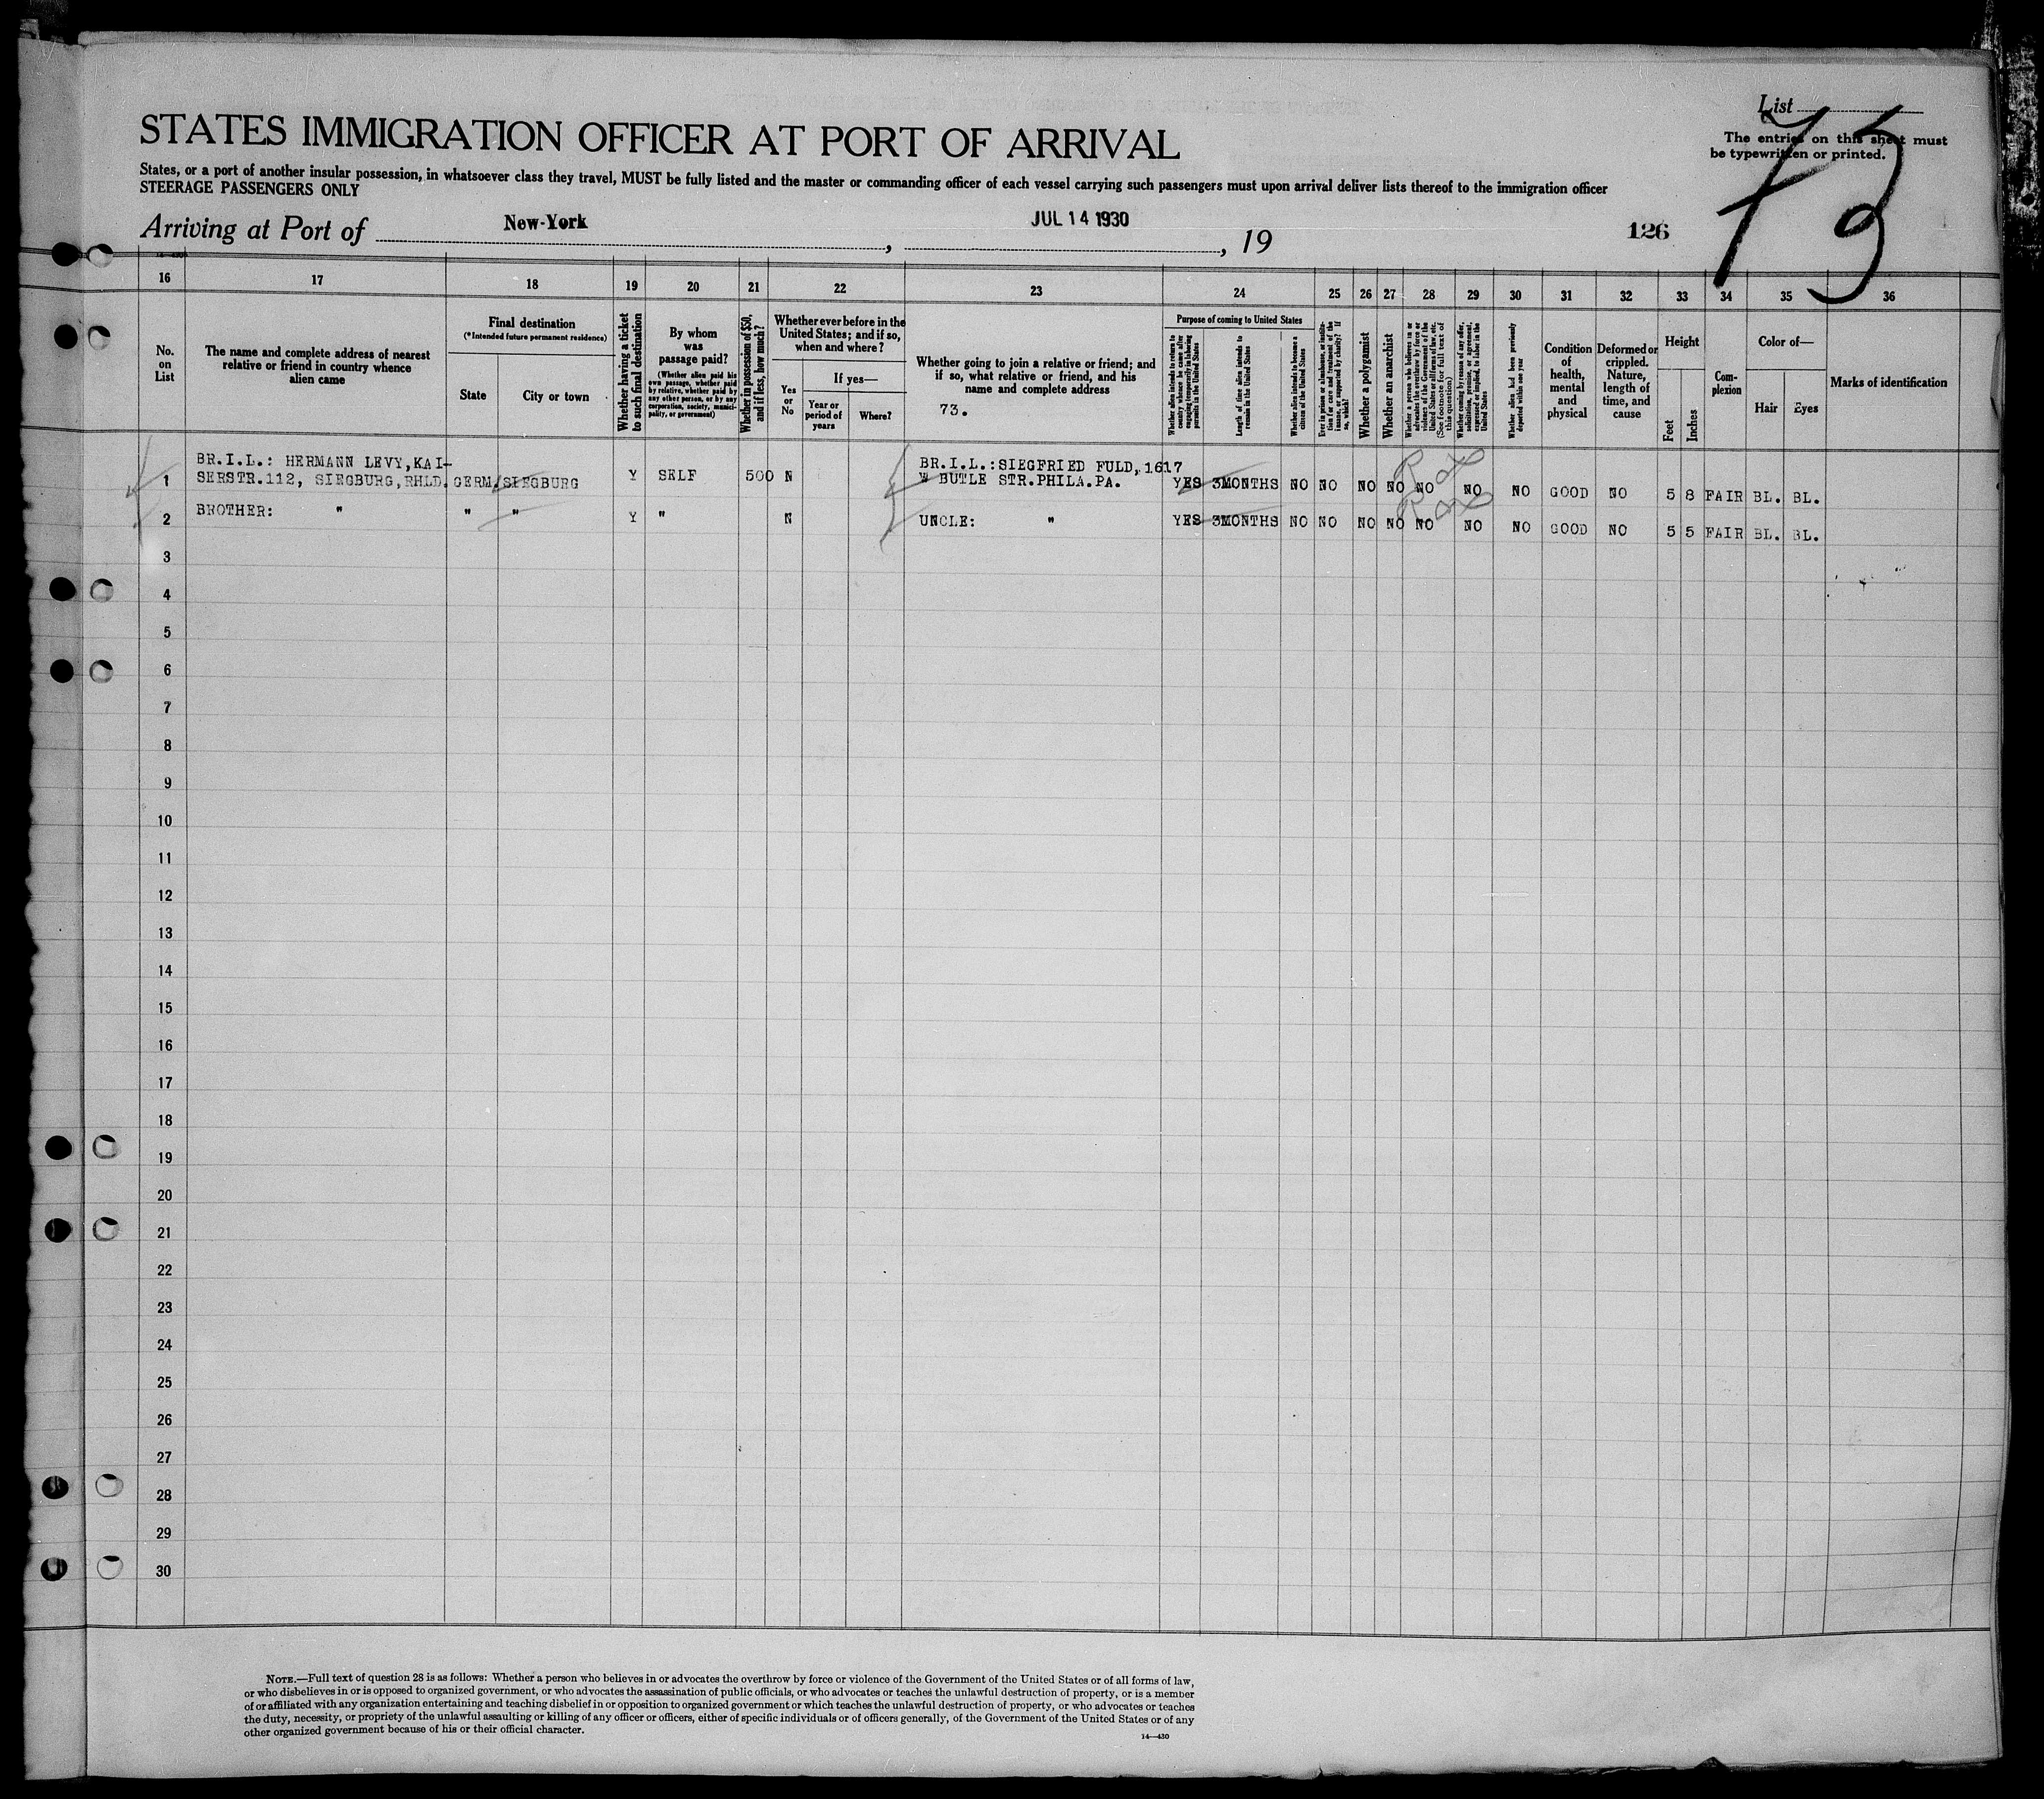 List
73
The entries on this sheet must
be typewritten or printed.
STATES IMMIGRATION OFFICER AT PORT OF ARRIVAL
States, or a port of another insular possession, in whatsoever class they travel, MUST be fully listed and the master or commanding officer of each vessel carrying such passengers must upon arrival deliver lists thereof to the immigration officer
STEERAGE PASSENGERS ONLY
Arriving at Port of New-York, JUL 14 1930, 19
126
16 17 18 19 20 21 22 23 24 25 26 27 28 29 30 31 32 33 34 35 36
No.
on
List
The name and complete address of nearest
relative or friend in country whence
alien came
Final destination
(*Intended future permanent residence)
State
City or town
Whether having a ticket
to such final destination
By whom
was
passage paid?
(Whether alien paid his
own passage, whether paid
by relative, whether paid by
any other person, or by any
corporation, society, munici-
pality, or government)
Whether in possession of $50,
and if less, how much?
Whether ever before in the
United States; and if so,
when and where?
Yes
or
No
If yes—
Year or
period of
years
Where?
Whether going to join a relative or friend; and
if so, what relative or friend, and his
name and complete address
73.
Purpose of coming to United States
Whether alien intends to return to
country whence he came after
engaging temporarily in laboring
pursuits in the United States
Length of time alien intends to
remain in the United States
Whether alien intends to become a
citizen of the United States
Ever in prison or almshouse, or institu-
tion for care and treatment of the
insane, or supported by charity? If
so, which?
Whether a polygamist
Whether an anarchist
Whether a person who believes in or
advocates the overthrow by force or
violence of the Government of the
United States or all forms of law, etc.
(See footnote for full text of
this question)
Whether coming by reason of any offer,
solicitation, promise, or agreement,
expressed or implied, to labor in the
United States
Whether alien had been previously
deported within one year
Condition
of
health,
mental
and
physical
Deformed or
crippled.
Nature,
length of
time, and
cause
Height
Feet
Inches
Com-
plexion
Color of—
Hair
Eyes
Marks of identification
BR.I.L.: HERMANN LEVY,KAI- BR.I.L.:SIEGFRIED FULD,1617
1 SERSTR.112, SIEGBURG,RHLD. GERM. SIEGBURG Y SELF 500 N W BUTLE STR.PHILA.PA. YES 3MONTHS NO NO NO NO NO NO NO GOOD NO 5 8 FAIR BL. BL.
2 BROTHER: " " " Y " N UNCLE: " YES 3MONTHS NO NO NO NO NO NO NO GOOD NO 5 5 FAIR BL. BL.
3
4
5
6
7
8
9
10
11
12
13
14
15
16
17
18
19
20
21
22
23
24
25
26
27
28
29
30
NOTE.—Full text of question 28 is as follows: Whether a person who believes in or advocates the overthrow by force or violence of the Government of the United States or of all forms of law,
or who disbelieves in or is opposed to organized government, or who advocates the assassination of public officials, or who advocates or teaches the unlawful destruction of property, or is a member
of or affiliated with any organization entertaining and teaching disbelief in or opposition to organized government or which teaches the unlawful destruction of property, or who advocates or teaches
the duty, necessity, or propriety of the unlawful assaulting or killing of any officer or officers, either of specific individuals or of officers generally, of the Government of the United States or of any
other organized government because of his or their official character.
14—430